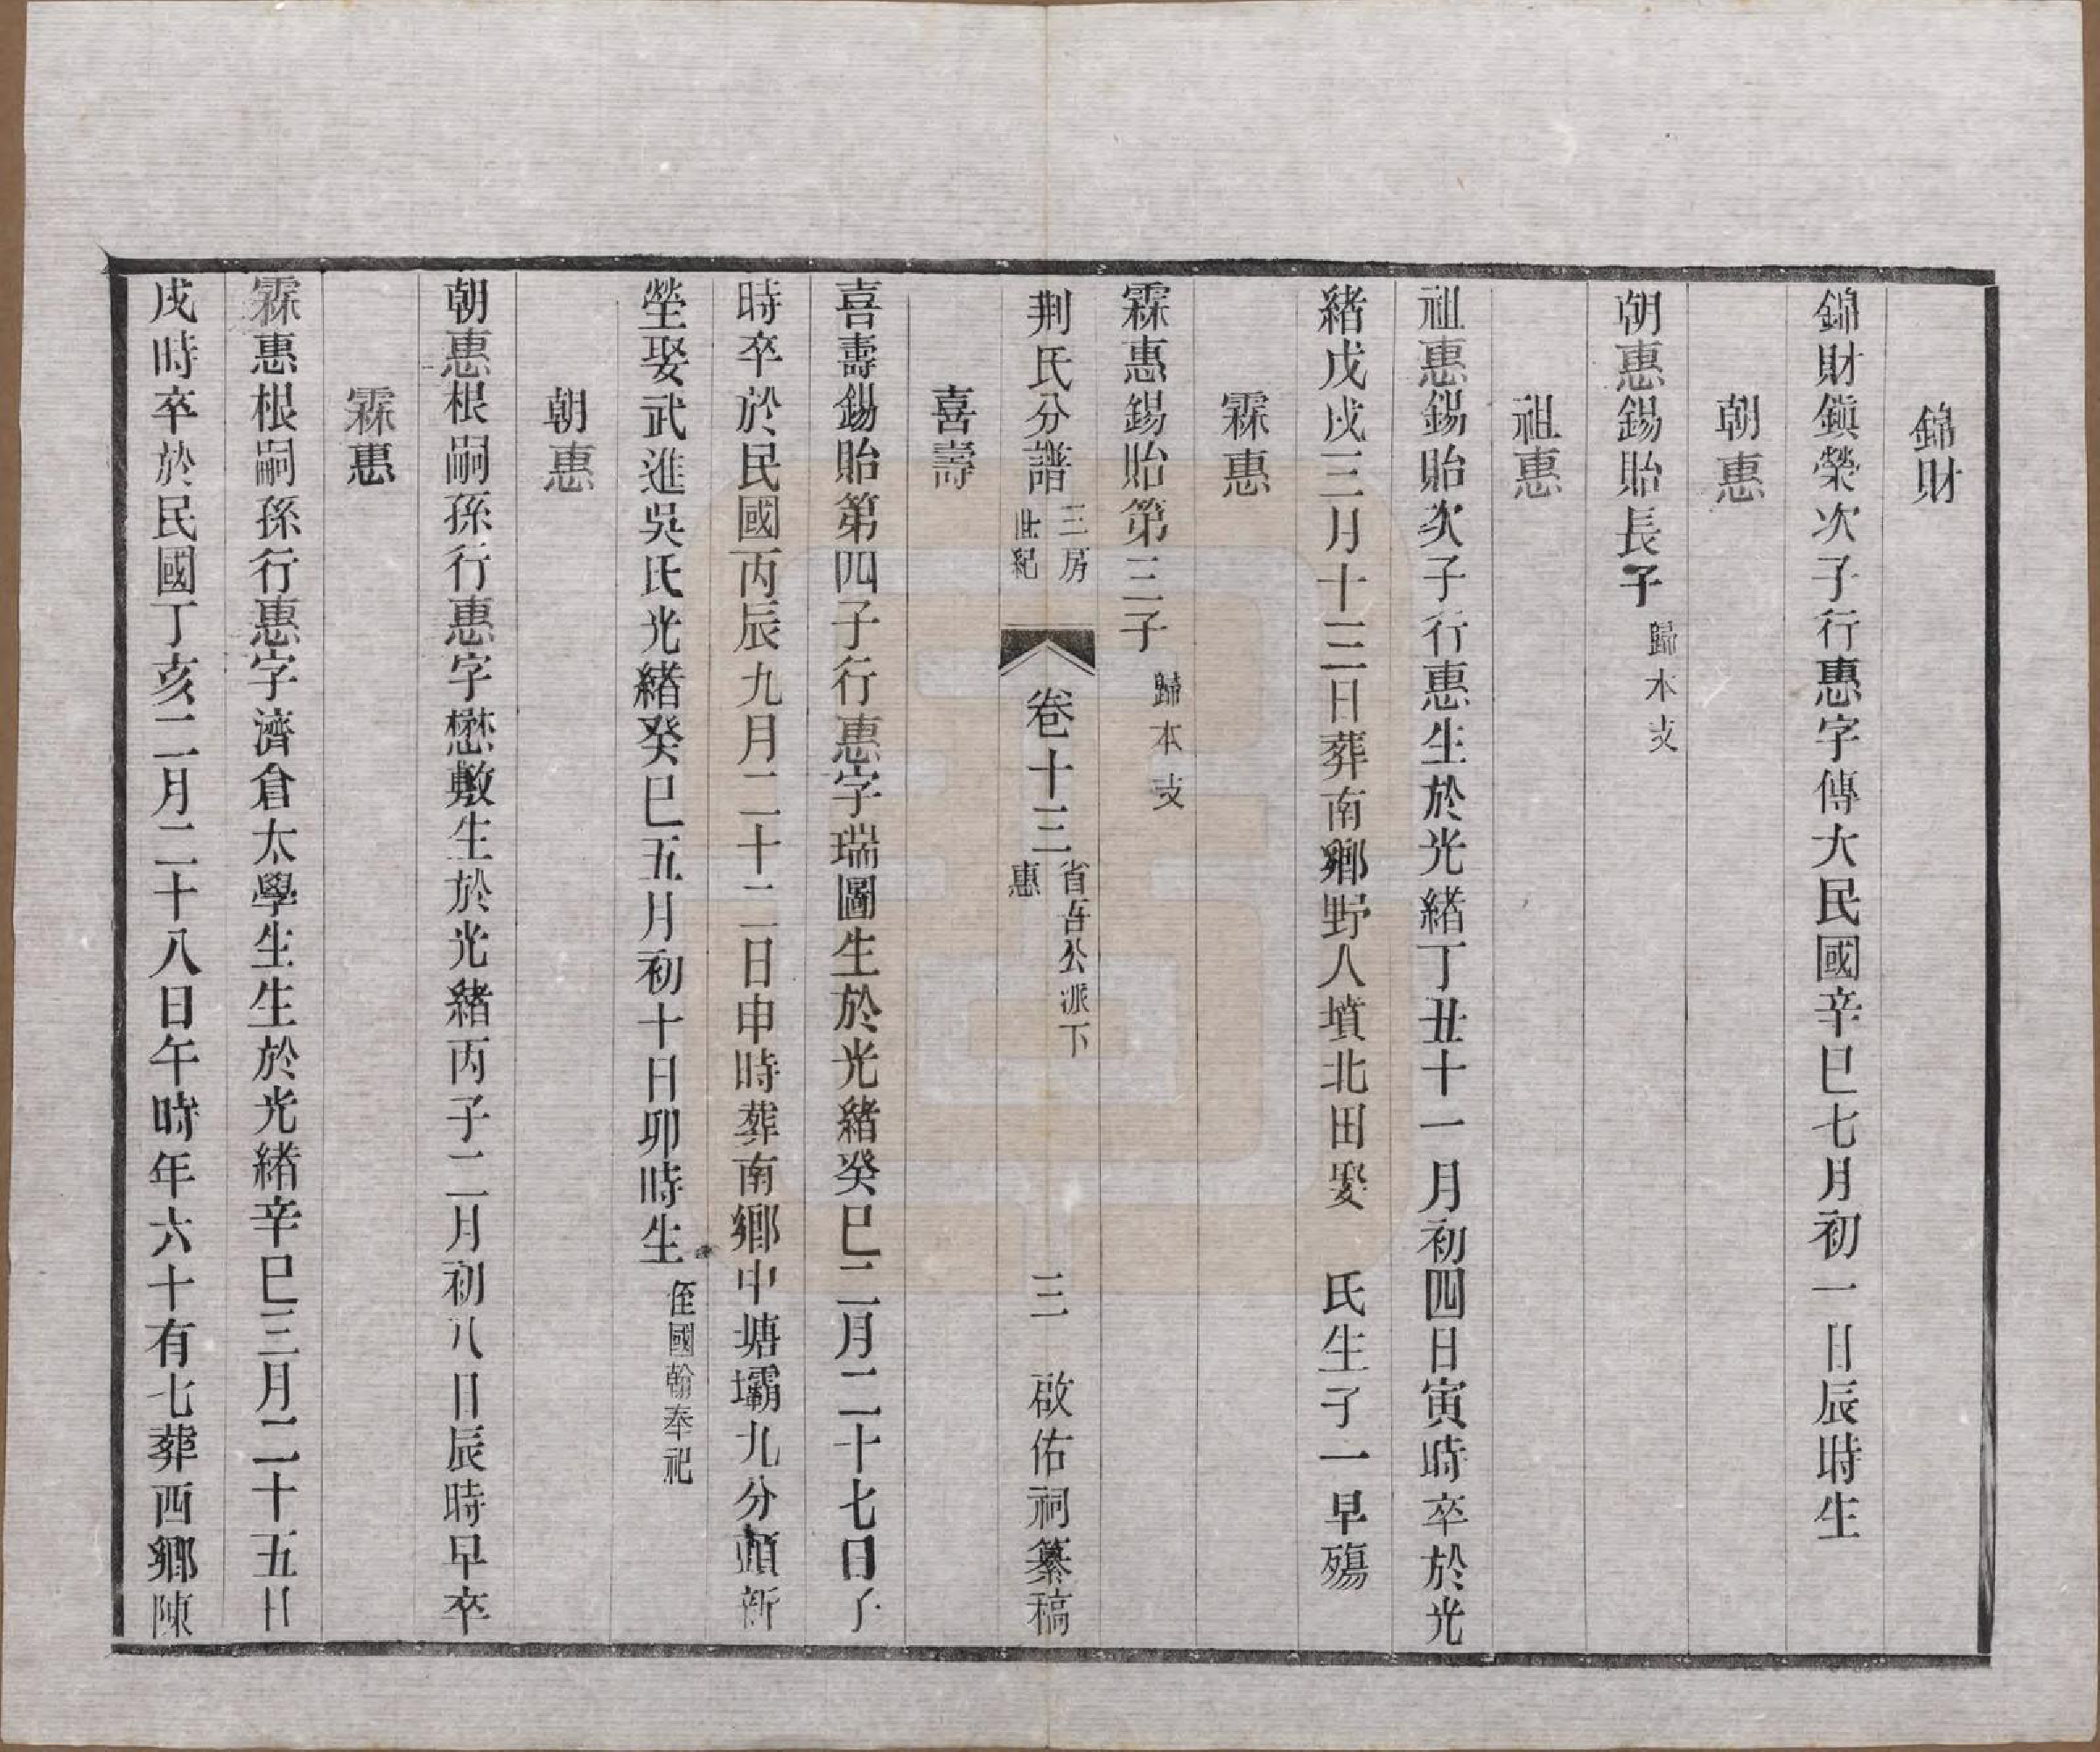 錦財
錦財鎮榮次子行惠字傳大民國辛巳七月初一日辰時生
朝惠
朝惠錫貽長子歸本支
祖惠
祖惠錫貽次子行惠生於光緒丁丑十一月初四日寅時卒於光
緒戊戌三月十三日葬南鄉野人墳北田娶　氏生子一早殤
霖惠
霖惠錫貽第三子歸本支
荆氏分譜三房世紀　卷十三省吾公派下惠　三　啟佑祠纂稿
喜壽
喜壽錫貽第四子行惠字瑞圖生於光緒癸巳二月二十七日子
時卒於民國丙辰九月二十二日申時葬南鄉中塘壩九分頭新
塋娶武進吳氏光緒癸巳五月初十日卯時生侄國翰奉祀
朝惠
朝惠根嗣孫行惠字懋敷生於光緒丙子二月初八日辰時早卒
霖惠
霖惠根嗣孫行惠字濟倉太學生生於光緒辛巳三月二十五日
戌時卒於民國丁亥二月二十八日午時年六十有七葬西鄉陳